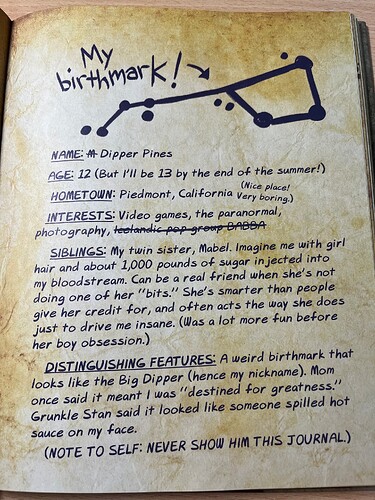 My
birthmark!
NAME: M Dipper Pines
AGE: 12 (But I'll be 13 by the end of the summer!)
HOMETOWN: Piedmont, California (Nice place! Very boring.)
INTERESTS: Video games, the paranormal,
photography, Icelandic pop group BABBA
SIBLINGS: My twin sister, Mabel. Imagine me with girl
hair and about 1,000 pounds of sugar injected into
my bloodstream. Can be a real friend when she's not
doing one of her "bits." She's smarter than people
give her credit for, and often acts the way she does
just to drive me insane. (Was a lot more fun before
her boy obsession.)
DISTINGUISHING FEATURES: A weird birthmark that
looks like the Big Dipper (hence my nickname). Mom
once said it meant I was "destined for greatness."
Grunkle Stan said it looked like someone spilled hot
sauce on my face.
(NOTE TO SELF: NEVER SHOW HIM THIS JOURNAL.)